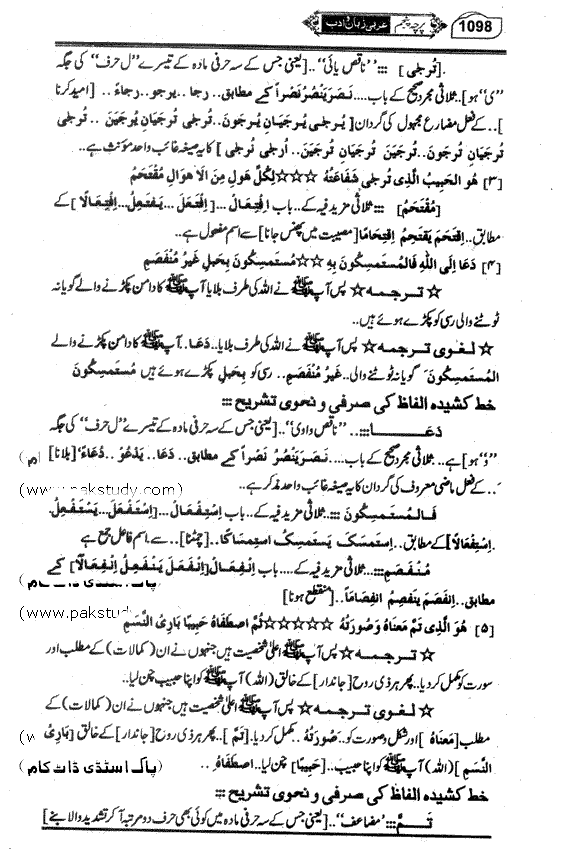 1098 عربی زبان و ادب پرچہ پنجم
[تُرجٰی] ::: ’’ناقص یائی‘‘..[یعنی جس کے سہ حرفی مادہ کے تیسرے ’’ل حرف‘‘ کی جگہ
’’ی‘‘ ہو].. ثلاثی مجرد صحیح کے باب.... نَصَرَ یَنصُرُ نَصْراً کے مطابق.. رجا.. یرجو.. رجاءً.. [امید کرنا
].. کے فعل مضارع مجہول کی گردان [یُرجٰی یُرجَیَانِ یُرجَونَ.. تُرجٰی تُرجَیَانِ یُرجَینَ.. تُرجٰی
تُرجَیَانِ تُرجَونَ.. تُرجَینَ تُرجَیَانِ تُرجَینَ.. اُرجٰی نُرجٰی] کا یہ صیغہ غائب واحد مؤنث ہے..
[۳] ھُوَ الحَبِیبُ الَّذِی تُرجٰی شَفَاعَتُہٗ ☆☆☆☆ لِکُلِّ ھَولٍ مِنَ الاَھوَالِ مُقْتَحَمُ
[مُقْتَحَمُ] ::: ثلاثی مزید فیہ کے.. باب اِفتِعَال... [اِفتَعَلَ.. یَفتَعِلُ.. اِفتِعَالاً] کے
مطابق.. اِقتَحَمَ یَقتَحِمُ اِقتِحَاماً [مصیبت میں پھنس جانا] سے اسم مفعول ہے..
[۴] دَعَا اِلَی اللّٰہِ فَالمُستَمسِکُونَ بِہٖ ☆☆ مُستَمسِکُونَ بِحَبلٍ غَیرُ مُنْفَصِمِ
☆ ترجمہ ☆ پس آپ ﷺ نے اللہ کی طرف بلایا آپ ﷺ کا دامن پکڑنے والے گویا نہ
ٹوٹنے والی رسی کو پکڑے ہوئے ہیں..
☆ لغوی ترجمہ ☆ پس آپ ﷺ نے اللہ کی طرف بلایا.. دَعَا.. آپ ﷺ کا دامن پکڑنے والے
المُستَمسِکُونَ گویا نہ ٹوٹنے والی.. غَیرُ مُنْفَصِمِ.. رسی کو بِحَبلٍ پکڑے ہوئے ہیں مُستَمسِکُونَ
خط کشیدہ الفاظ کی صرفی و نحوی تشریح :::
دَعَا:::.. ’’ناقص واوی‘‘..[یعنی جس کے سہ حرفی مادہ کے تیسرے ’’ل حرف‘‘ کی جگہ
’’و‘‘ ہو] ہے.. ثلاثی مجرد صحیح کے باب.... نَصَرَ یَنصُرُ نَصراً کے مطابق.. دَعَا.. یَدْعُوْ.. دُعَاءً [بلانا]
.. کے فعل ماضی معروف کی گردان کا یہ صیغہ غائب واحد مذکر ہے..
(www.pakstudy.com)
فَالمُستَمسِکُونَ ::: ثلاثی مزید فیہ کے.. باب اِستِفعَال... [اِستَفعَلَ.. یَستَفْعِلُ.
.اِستِفعَالاً] کے مطابق.. اِستَمسَکَ یَستَمسِکُ اِستِمسَاکاً.. [چمٹنا].. سے اسم فاعل جمع ہے
مُنْفَصِمِ:::.. ثلاثی مزید فیہ کے.... باب اِنفِعَالُ [اِنفَعَلَ یَنفَعِلُ اِنفِعَالاً] کے
پاک اسٹڈی ڈاٹ کام
مطابق.. اِنفَصَمَ یَنفَصِمُ اِنفِصَاماً..[منقطع ہونا]
(www.pakstud
[۵] ھُوَ الَّذِی تَمَّ مَعنَاہُ وَصُورَتُہٗ ☆☆☆☆☆ ثُمَّ اصطَفَاہُ حَبِیبًا بَارِیُٔ النَّسَمِ
☆ ترجمہ ☆ پس آپ ﷺ اعلیٰ شخصیت ہیں جنہوں نے ان (کمالات) کے مطلب اور
سورت کو مکمل کر دیا.. پھر ہر ذی روح [جاندار] کے خالق (اللہ) آپ ﷺ کو اپنا حبیب چن لیا..
☆ لغوی ترجمہ ☆ پس آپ ﷺ اعلیٰ شخصیت ہیں جنہوں نے ان (کمالات) کے
مطلب [مَعنَاہُ] اور شکل و صورت کو.. صُورَتُہٗ.. مکمل کر دیا.. [تَمَّ].. پھر ہر ذی روح [جاندار] کے خالق [بَارِیُٔ
(w
النَّسَمِ] (اللہ) آپ ﷺ کو اپنا حبیب.. [حَبِیبًا] چن لیا.. اصطَفَاہُ..
(پاک اسٹڈی ڈاٹ کام
خط کشیدہ الفاظ کی صرفی و نحوی تشریح :::
تَمَّ::: ’’مضاعف‘‘..[یعنی جس کے سہ حرفی مادہ میں کوئی بھی حرف دو مرتبہ آ کر تشدید والا بنے]